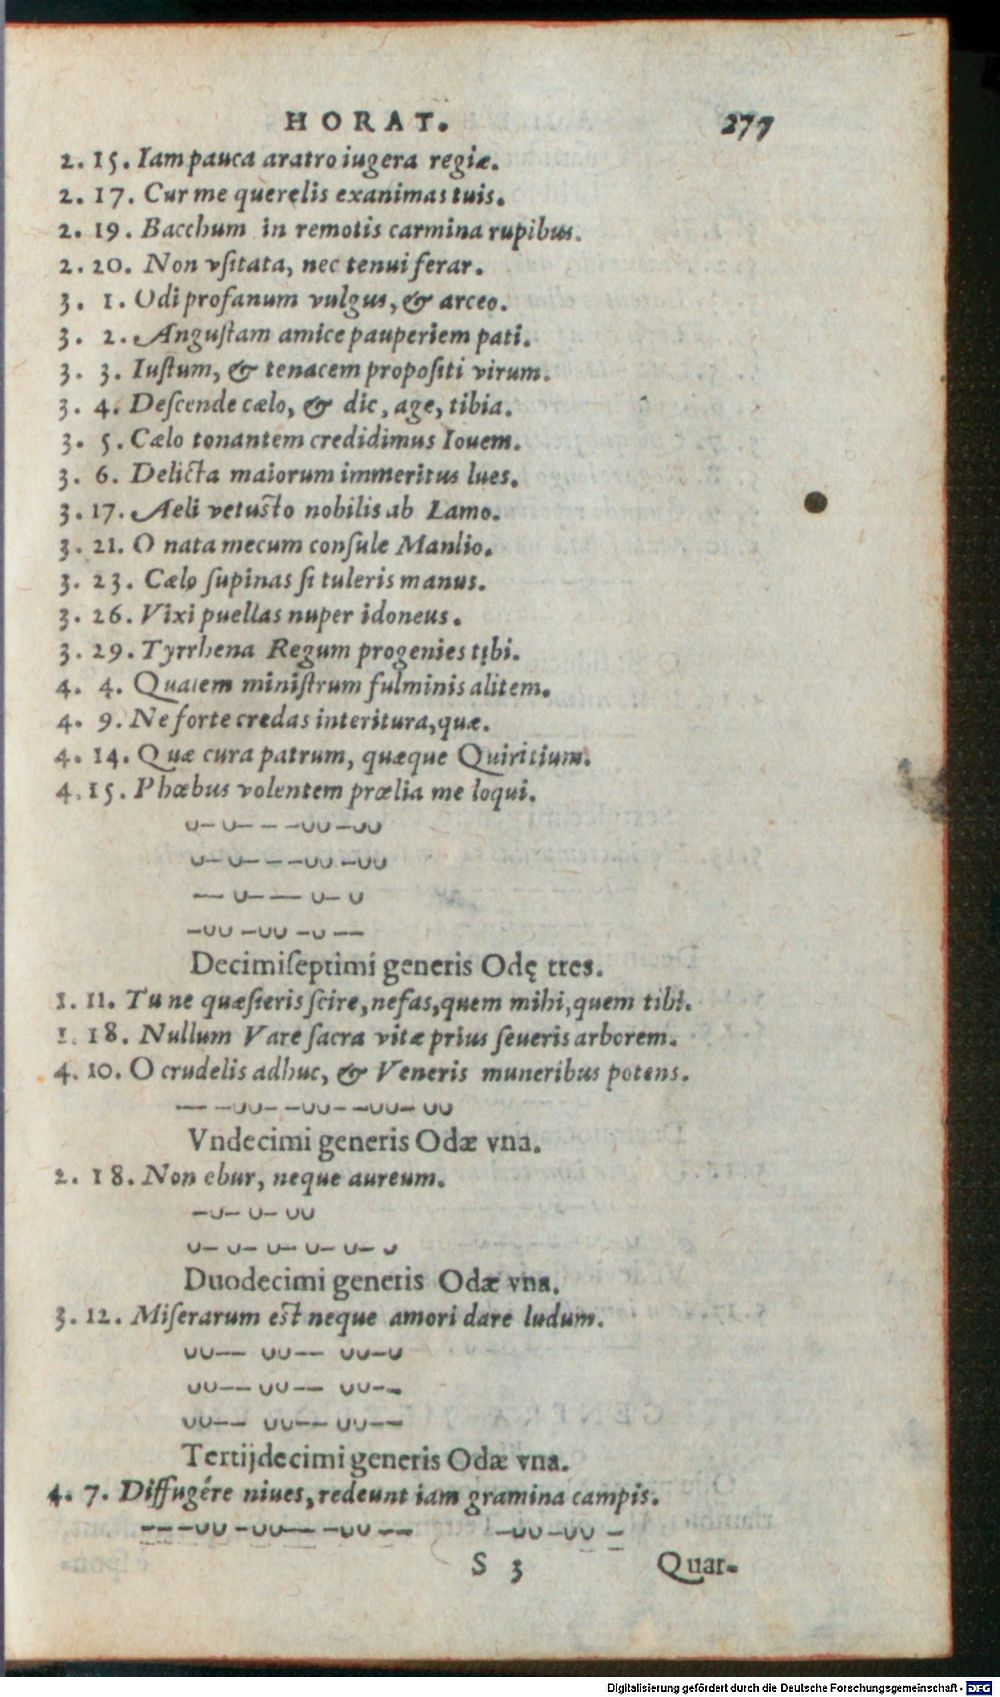 HORAT. 277
2. 15. Iam pauca aratro iugera regiæ.
2. 17. Cur me querelis exanimas tuis.
2. 19. Bacchum in remotis carmina rupibus.
2. 20. Non vsitata, nec tenui ferar.
3. 1. Odi profanum vulgus, & arceo.
3. 2. Angustam amice pauperiem pati.
3. 3. Iustum, & tenacem propositi virum.
3. 4. Descende cælo, & dic, age, tibia.
3. 5. Cælo tonantem credidimus Iouem.
3. 6. Delicta maiorum immeritus lues.
3. 17. Aeli vetusto nobilis ab Lamo.
3. 21. O nata mecum consule Manlio.
3. 23. Cælo supinas si tuleris manus.
3. 26. Vixi puellas nuper idoneus.
3. 29. Tyrrhena Regum progenies tibi.
4. 4. Qualem ministrum fulminis alitem.
4. 9. Ne forte credas interitura, quæ.
4. 14. Quæ cura patrum, quæque Quiritium.
4. 15. Phœbus volentem prœlia me loqui.
∪– ∪– – –∪∪ –∪∪
∪– ∪– – –∪∪ –∪∪
–– ∪– –– ∪– ∪
–∪∪ –∪∪ –∪ ––
Decimiseptimi generis Odę tres.
1. 11. Tu ne quæsieris scire, nefas, quem mihi, quem tibi.
1. 18. Nullum Vare sacra vitæ prius seueris arborem.
4. 10. O crudelis adhuc, & Veneris muneribus potens.
–– –∪∪– –∪∪– –∪∪– ∪∪
Vndecimi generis Odæ vna.
2. 18. Non ebur, neque aureum.
–∪– ∪– ∪∪
∪– ∪– ∪– ∪– ∪– ∪
Duodecimi generis Odæ vna.
3. 12. Miserarum est neque amori dare ludum.
∪∪–– ∪∪–– ∪∪–∪
∪∪–– ∪∪–– ∪∪––
∪∪–– ∪∪–– ∪∪––
Tertijdecimi generis Odæ vna.
4. 7. Diffugére niues, redeunt iam gramina campis.
–––∪∪ –∪∪–– –∪∪ –– –∪∪–∪∪ –
S 3 Quar-
Digitalisierung gefördert durch die Deutsche Forschungsgemeinschaft - DFG